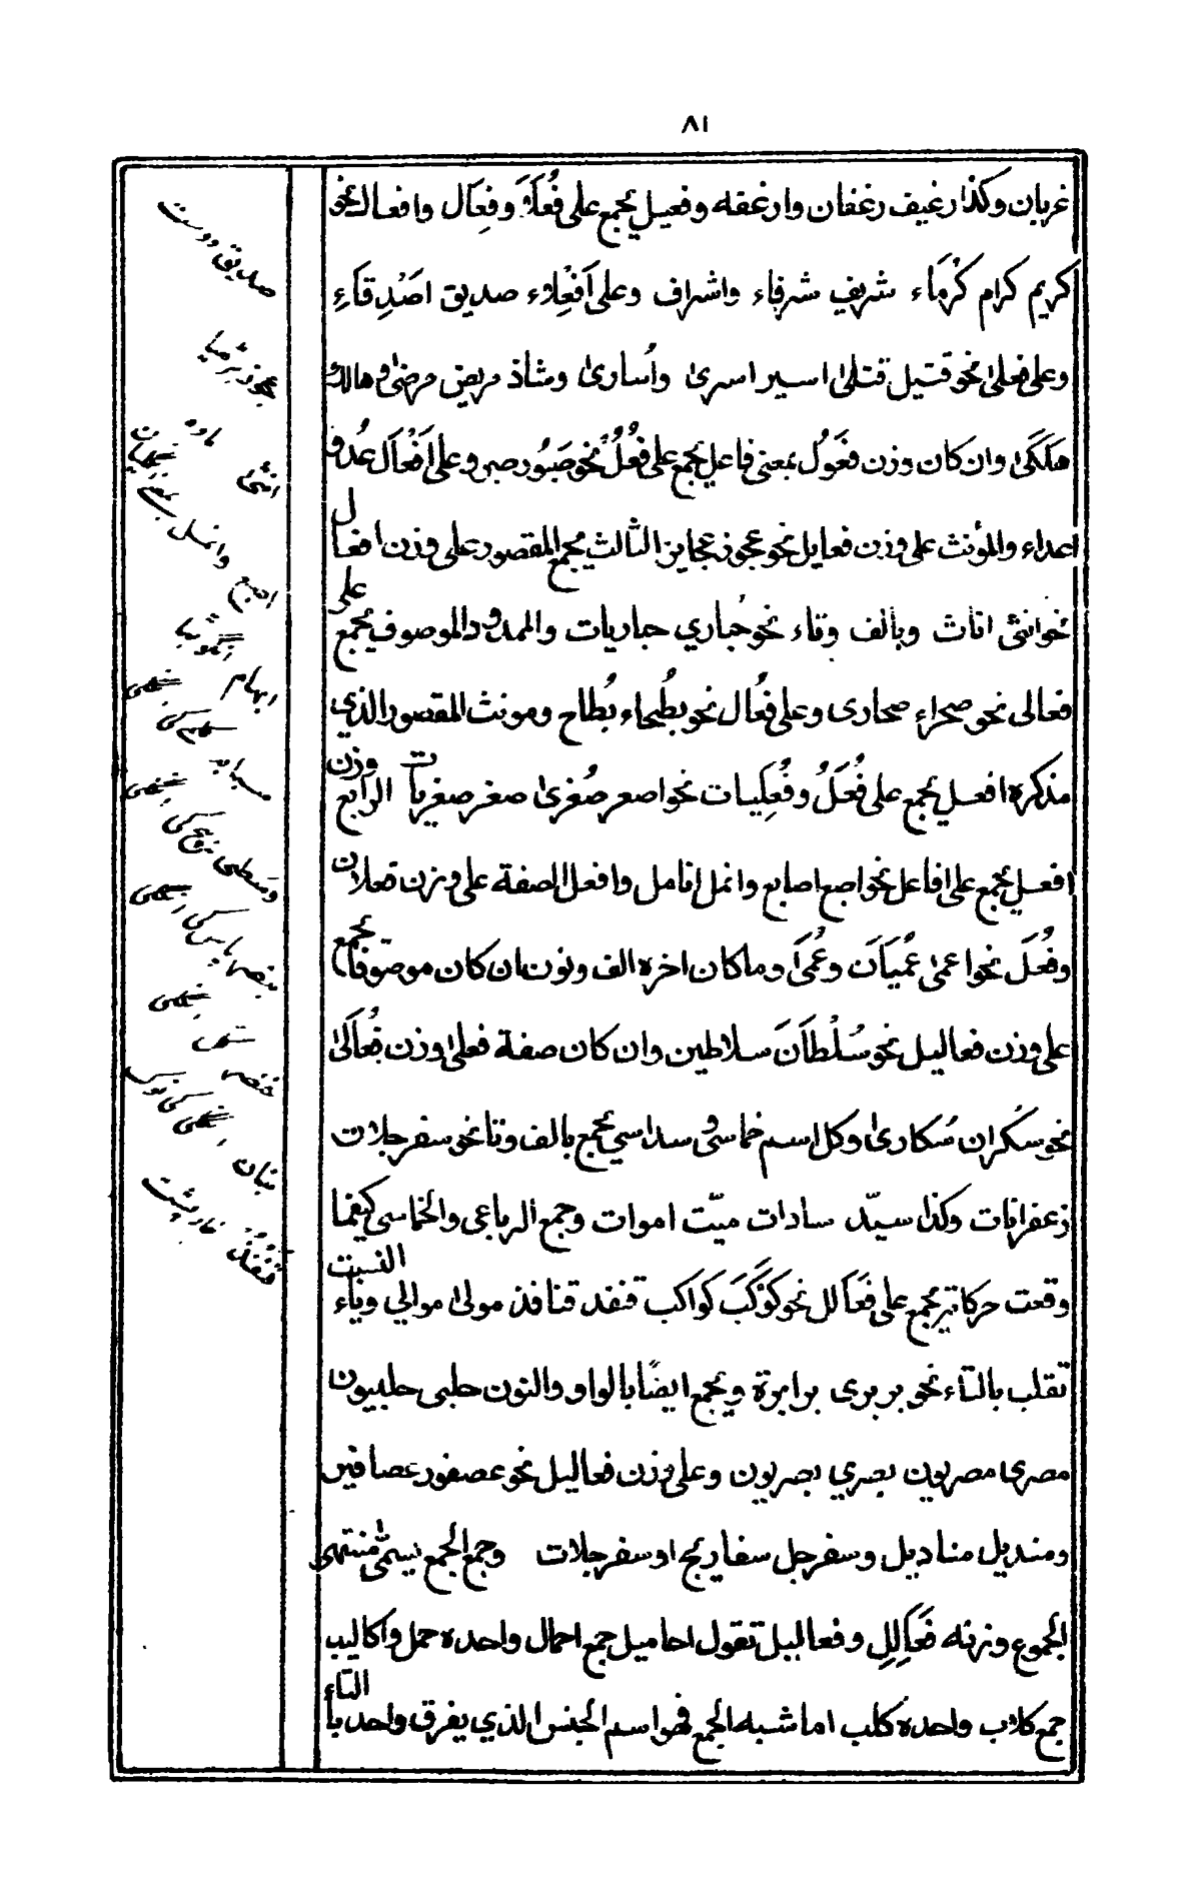 ٨١
غربان وكذا رغيف رغفان وارغفه وفعيل يجمع على فُعَلَاَء وفِعَال وافعال نحو
كريم كرام كُرَمَاء شريف شرفاء واشراف وعلى اَفْعِلاء صديق اصْدِقَاءِ
وعلى فعلىٰ نحو قتيل قتلىٰ اسير اسرىٰ واُسارىٰ ومثاذ مريض مرضىٰ وهالك
هَلَكَىٰ وان كان وزن فَعَوُل بمعنى فاعل يجمع على فُعُلُ نحو صَبُور صبر وعلى اَفْعَال عُدو
اعداء والمؤنث على وزن فعايل نحو عجوز عجايز الثالث يجمع المقصور على وزن افعال
نحو انثى اناث وبالف وتاء نحو حُباري حباريات والممدود الموصوف يجمع على
فعالى نحو صحراء صحارى وعلى فُعال نحو بطُحاء بُطاح ومونث المقصور الذي
مذكره افعل يجمع على فُعَلُ وفُعِليات نحو اصغر صُغرىٰ صغر صغريات الرابع وزن
افعل يجمع على افاعل نحو اصبع اصابع وانمل انامل وافعل الصفة على وزن فعلان
وفُعلَ نحو اعمىٰ عُميَاَن وعُمىَ وما كان اخره الف ونون ان كان موصوفا يجمع
على وزن فعاليل نحو سُلْطاَنَ سلاطين وان كان صفة فعلىٰ وزن فُعاَلىٰ
نحو سكران سُكارىٰ وكل اسم خماسى وسداسي يجمع بالف وتا نحو سفرجلات
زعفرانات وكذا سيّد سادات ميّت اموات وجمع الرباعى والخماسى كيفما
وقعت حركاته يجمع على فَعَالل نحو كَوْكَبَ كواكب قنفد قنافذ مولىٰ موالي وياء النسبت
تقلب بالتاء نحو بربرى برابرة ويجمع ايضًا بالواو والنون حلبى حلبيون
مصرى مصريون بصري بصريون وعلى وزن فعاليل نحو عصفور عصافير
ومنديل مناديل وسفرجل سفاريج او سفرجلات وجمع الجمع يسمّى منتهى
الجموع وزنه فَعَالِلِ وفعاليل تقول احاميل جمع احمال واحده حمل واكاليب
جمع كلاب واحده كلب اما شبه الجمع فهو اسم الجنس الذي يفرق واحد بالتاء
صديق دوست
عجوز بڑھیا
انثى ماده
اصبع
ابهام
سبابه
وسطى
بنصر
خنصر
بنان
قُنفُذُ خارپشت